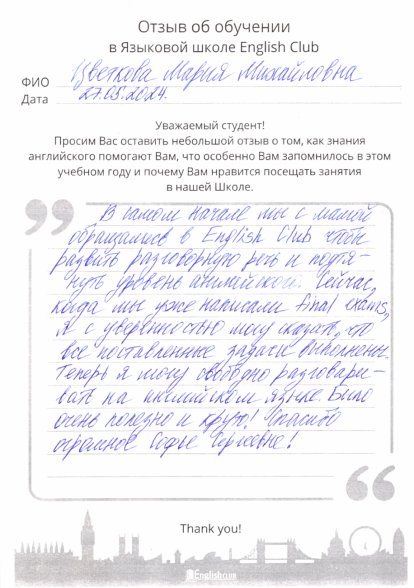 Отзыв об обучении
в Языковой школе English Club
ФИО Цветкова Мария Михайловна
Дата 27.05.2024.
Уважаемый студент!
Просим Вас оставить небольшой отзыв о том, как знания
английского помогают Вам, что особенно Вам запомнилось в этом
учебном году и почему Вам нравится посещать занятия
в нашей Школе.
В самом начале мы с мамой
обращались в English Club чтобы
развить разговорную речь и подтя-
нуть уровень английского. Сейчас,
когда мы уже написали final exams,
я с уверенностью могу сказать, что
все поставленные задачи выполнены.
Теперь я могу свободно разговари-
вать на английском языке. Было
очень полезно и круто! Спасибо
огромное Софье Сергеевне!
Thank you!
English CLUB